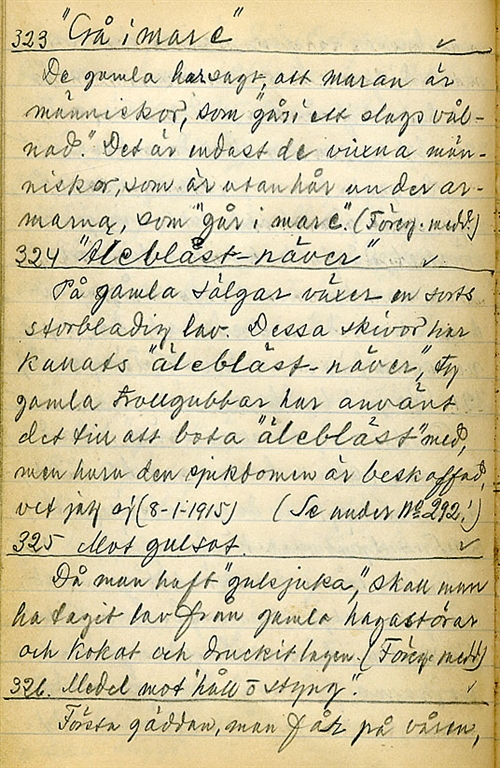 323 "Gå i mare"
De gamla har sagt, att maran är
människor, som "går i ett slags vål-
nad." Det är endast de vuxna män-
niskor, som är utan hår under ar-
marna, som "går i mare". (Föreg. medd.)
324 "Älebläst-näver"
På gamla sälgar växer en sorts
storbladig lav. Dessa skivor har
kallats "älebläst-näver", ty
gamla trollgubbar har använt
det till att bota "älebläst" med,
men huru den sjukdomen är beskaffad,
vet jag ej (8-1-1915) (Se under No 292!)
325 Mot gulsot.
Då man haft "gulsjuka", skall man
ha tagit lav från gamla hagastörar
och kokat och druckit lagen. (Föreg. medd.)
326. Medel mot "håll o styng".
Första gäddan, man får på våren,